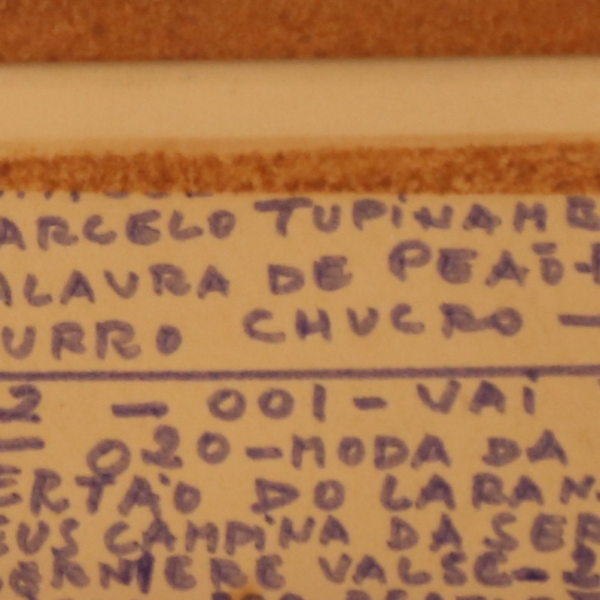 ARCELO TUPINAMB
ALAVRA DE PEÃO-
URRO CHUCRO —
2 — 001 - VAI
— 020-MODA DA
ERTÃO DO LARAN
EUS CAMPINA DA SER
DERNIERE VALSE-2